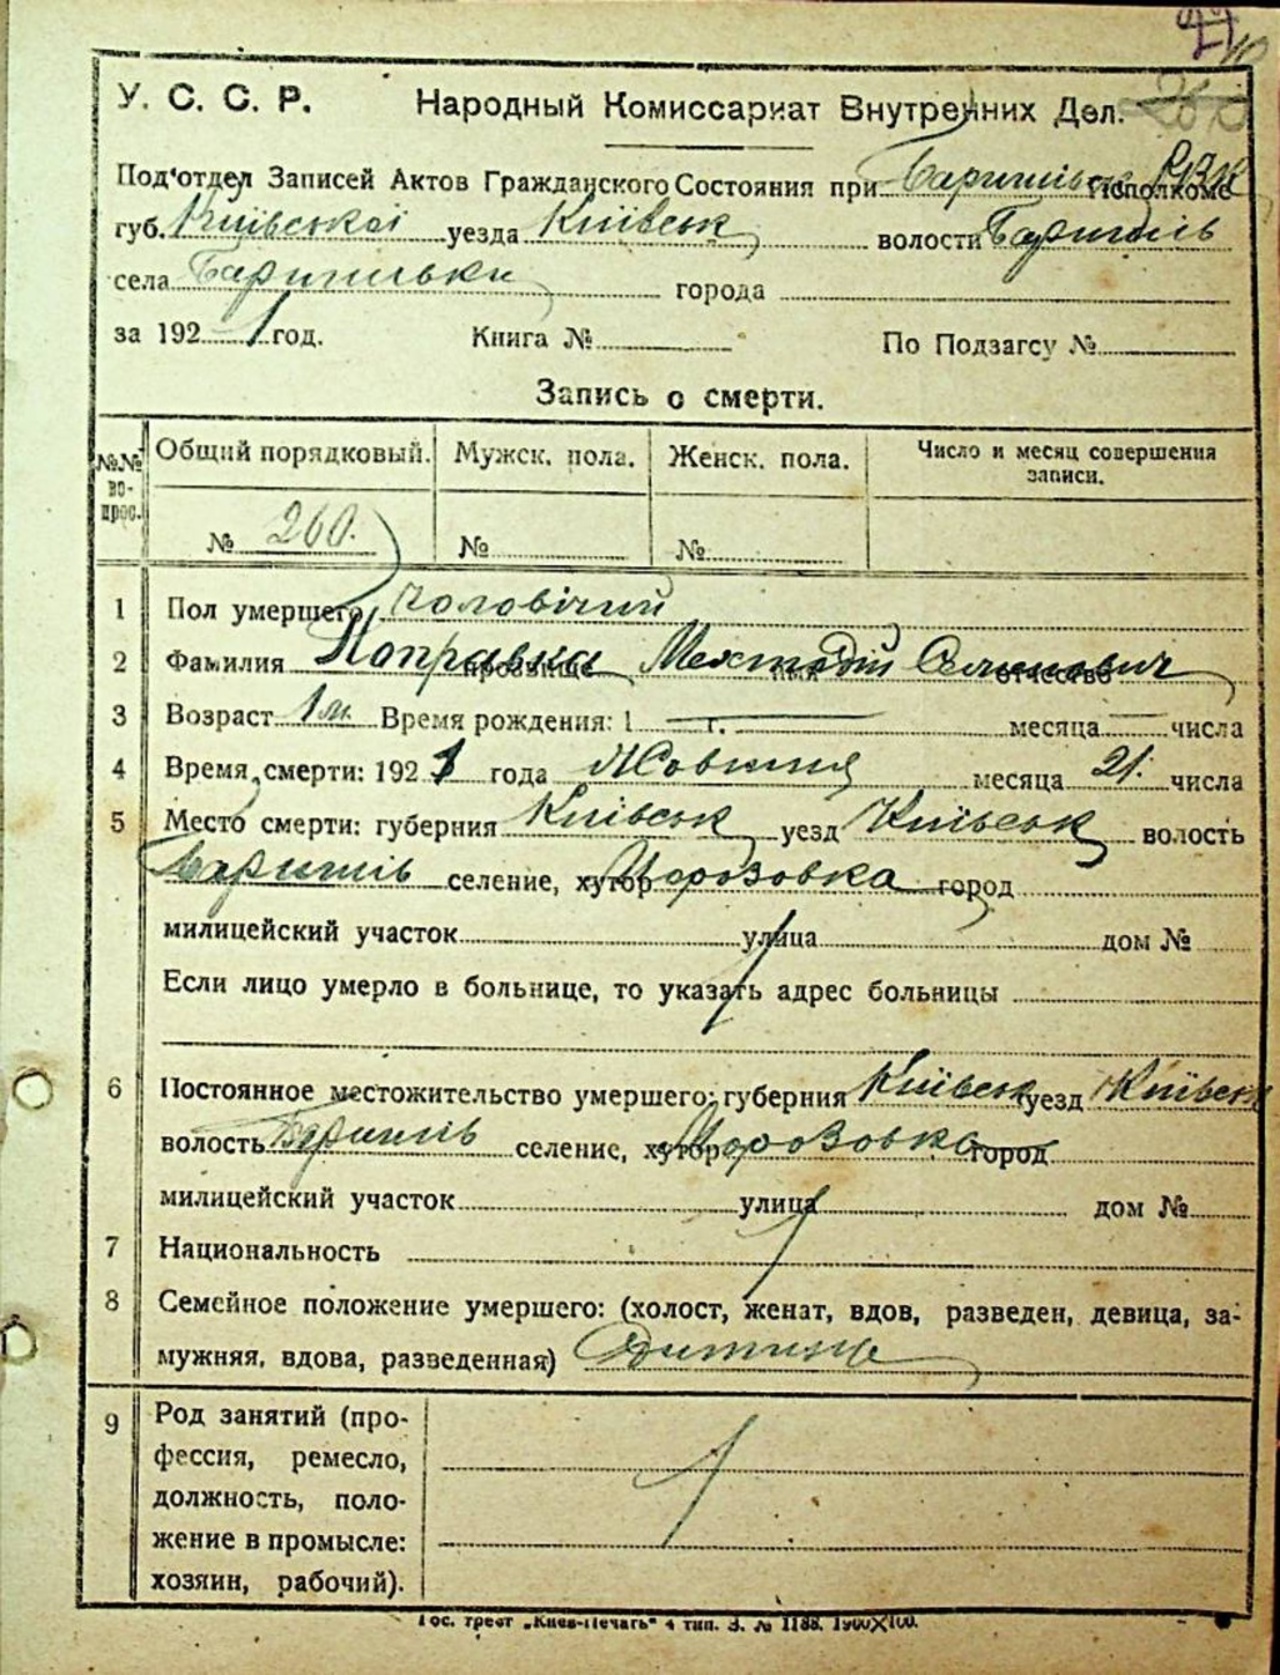 У. С. С. Р. Народный Комиссариат Внутренних Дел.
Под'отдел Записей Актов Гражданского Состояния при Исполкоме
губ. Київської уезда Київськ волости Баришів
села Баришівки города
за 1921 год. Книга № По Подзагсу №
Запись о смерти.
№№ во- прос. Общий порядковый. Мужск. пола. Женск. пола. Число и месяц совершения записи.
№ 260. № №
1 Пол умершего Чоловічий
2 Фамилия Поправка прозвище имя отчество
3 Возраст 1 м. Время рождения: 1 г. месяца числа
4 Время смерти: 1921 года Жовтня месяца 21. числа
5 Место смерти: губерния Київськ уезд Київськ волость
Баришів селение, хутор Морозовка город
милицейский участок улица дом №
Если лицо умерло в больнице, то указать адрес больницы
6 Постоянное местожительство умершего: губерния Київськ уезд Київськ
волость Баришів селение, хутор Морозовка город
милицейский участок улица дом №
7 Национальность
8 Семейное положение умершего: (холост, женат, вдов, разведен, девица, за-
мужняя, вдова, разведенная) Дитина
9 Род занятий (про-
фессия, ремесло,
должность, поло-
жение в промысле:
хозяин, рабочий).
Гос. трест „Киев-Печать" 4 тип. З. № 1188. 1900X100.